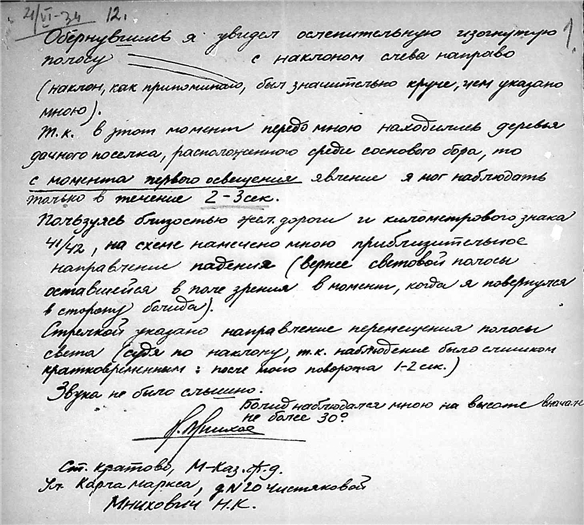 21/VI-34 12. 1.
Обернувшись я увидел ослепительную изогнутую
полосу с наклоном слева направо
(наклон, как припоминаю, был значительно круче, чем указано
мною).
Т.к. в этот момент передо мною находились деревья
дачного поселка, расположенного среди соснового бора, то
с момента первого освещения явление я мог наблюдать
только в течение 2-3 сек.
Пользуясь близостью жел. дороги и километрового знака
41/42, на схеме намечено мною приблизительное
направление падения (вернее световой полосы
оставшейся в поле зрения в момент, когда я повернулся
в сторону болида).
Стрелкой указано направление перемещения полосы
света (судя по наклону, т.к. наблюдение было слишком
кратковременным: после моего поворота 1-2 сек.)
Звука не было слышно.
Болид наблюдался мною на высоте вначале
не более 30°
Ст. Кратово, М-Каз. ж.д.
Ул. Карла Маркса, д. N 20 Чистяковой
Мнихович Н.К.